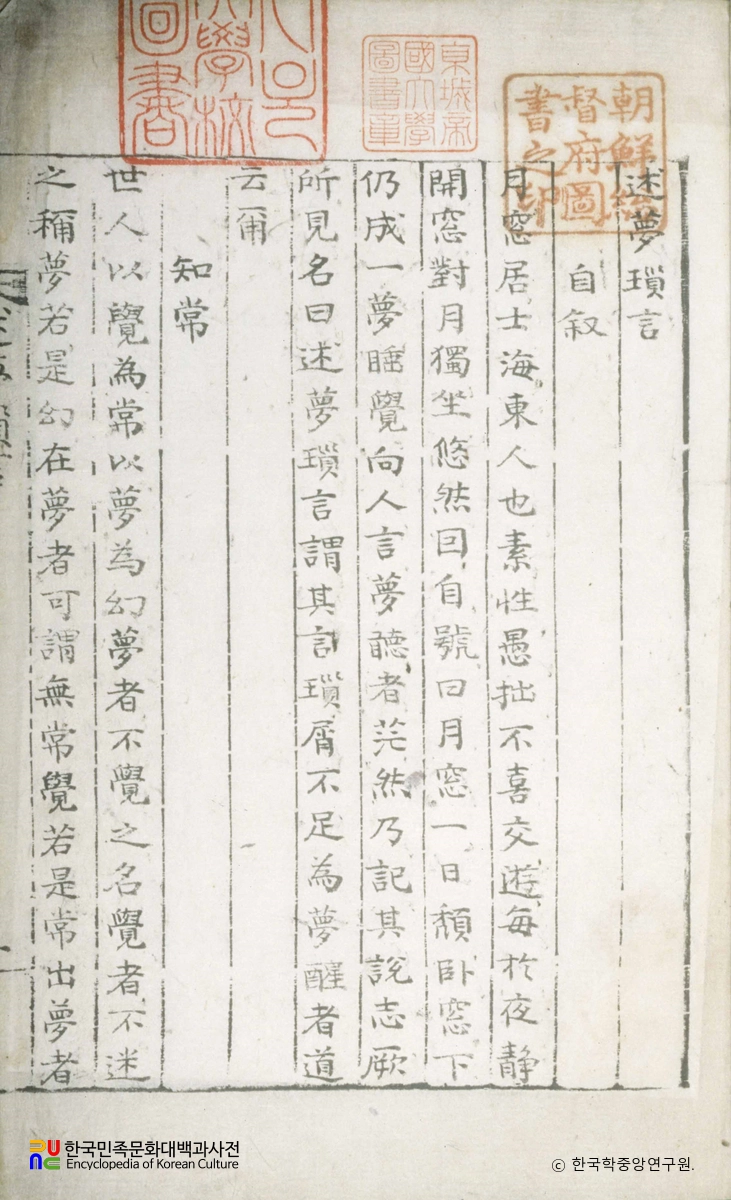 述夢瑣言
自叙
月窓居士海東人也素性愚拙不喜交遊每於夜靜
開窓對月獨坐悠然因自號曰月窓一日頹臥窓下
仍成一夢睡覺向人言夢聽者茫然乃記其說志厥
所見名曰述夢瑣言謂其言瑣屑不足為夢醒者道
云爾
知常
世人以覺為常以夢為幻夢者不覺之名覺者不迷
之稱夢若是幻在夢者可謂無常覺若是常出夢者
朝鮮總
督府圖
書之印
京城帝
國大學
圖書章
大學校
圖書
한국민족문화대백과사전
Encyclopedia of Korean Culture
© 한국학중앙연구원.